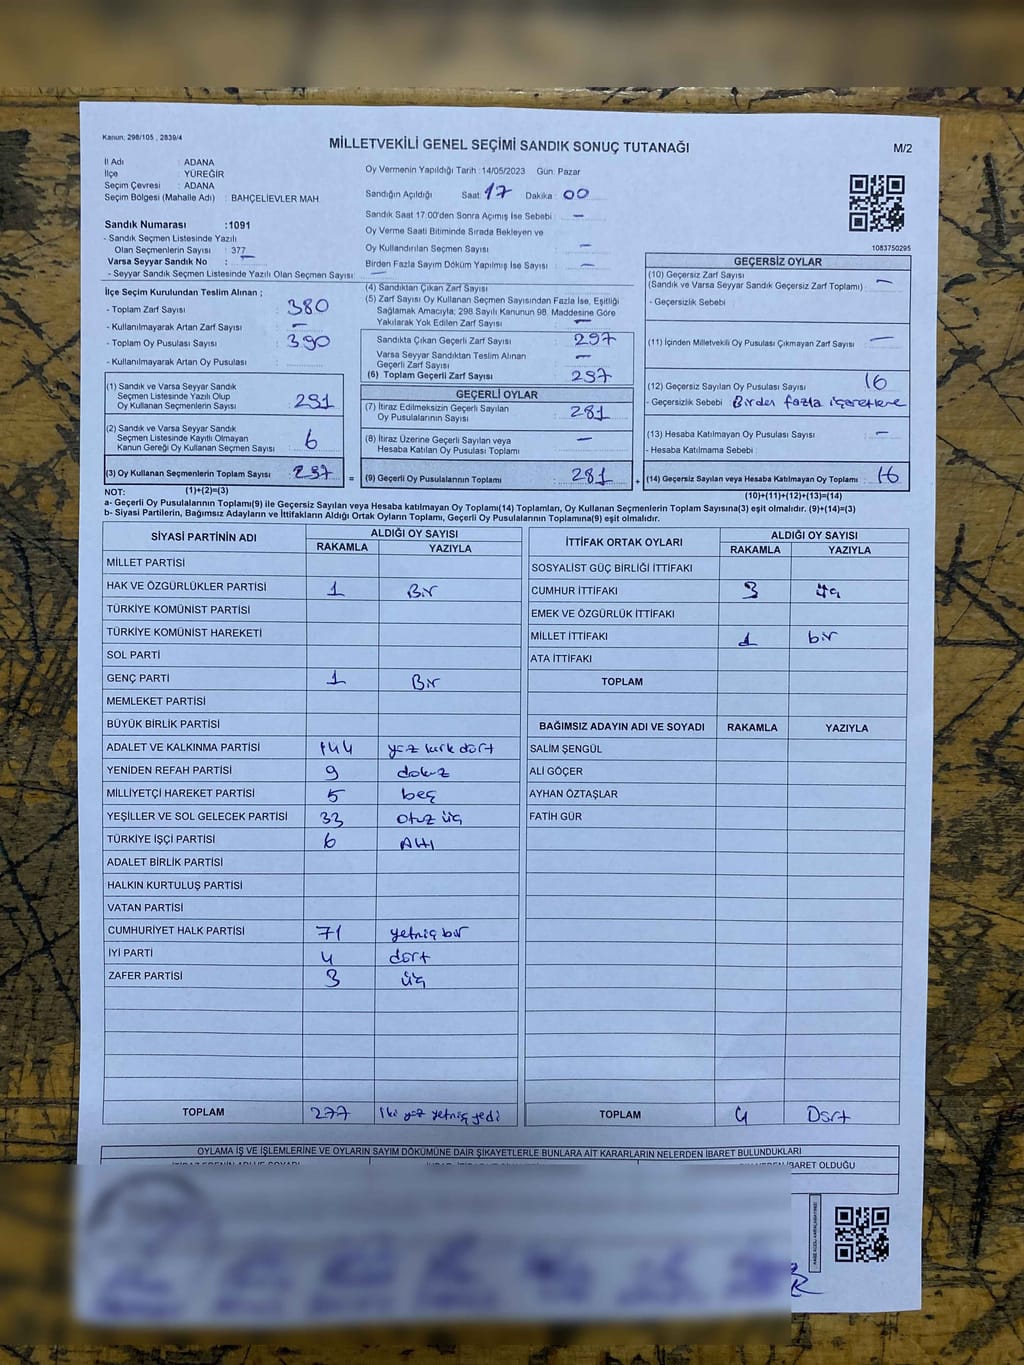 Kanun: 298/105 , 2839/4
MİLLETVEKİLİ GENEL SEÇİMİ SANDIK SONUÇ TUTANAĞI
M/2
İl Adı : ADANA
İlçe : YÜREĞİR
Seçim Çevresi : ADANA
Seçim Bölgesi (Mahalle Adı) : BAHÇELİEVLER MAH.
Oy Vermenin Yapıldığı Tarih :14/05/2023 Gün: Pazar
Sandığın Açıldığı Saat: 17 Dakika : 00
Sandık Saat 17.00'den Sonra Açılmış İse Sebebi : —
Oy Verme Saati Bitiminde Sırada Bekleyen ve
Oy Kullandırılan Seçmen Sayısı : —
Birden Fazla Sayım Döküm Yapılmış İse Sayısı : —
1083750295
Sandık Numarası :1091
- Sandık Seçmen Listesinde Yazılı
Olan Seçmenlerin Sayısı : 377
Varsa Seyyar Sandık No : —
- Seyyar Sandık Seçmen Listesinde Yazılı Olan Seçmen Sayısı : —
İlçe Seçim Kurulundan Teslim Alınan ;
- Toplam Zarf Sayısı : 380
- Kullanılmayarak Artan Zarf Sayısı : —
- Toplam Oy Pusulası Sayısı : 390
- Kullanılmayarak Artan Oy Pusulası :
(1) Sandık ve Varsa Seyyar Sandık
Seçmen Listesinde Yazılı Olup
Oy Kullanan Seçmenlerin Sayısı : 291
(2) Sandık ve Varsa Seyyar Sandık
Seçmen Listesinde Kayıtlı Olmayan
Kanun Gereği Oy Kullanan Seçmen Sayısı : 6
(3) Oy Kullanan Seçmenlerin Toplam Sayısı : 297
(1)+(2)=(3)
(4) Sandıktan Çıkan Zarf Sayısı :
(5) Zarf Sayısı Oy Kullanan Seçmen Sayısından Fazla İse, Eşitliği
Sağlamak Amacıyla; 298 Sayılı Kanunun 98. Maddesine Göre
Yakılarak Yok Edilen Zarf Sayısı : —
Sandıkta Çıkan Geçerli Zarf Sayısı : 297
Varsa Seyyar Sandıktan Teslim Alınan
Geçerli Zarf Sayısı : —
(6) Toplam Geçerli Zarf Sayısı : 297
GEÇERLİ OYLAR
(7) İtiraz Edilmeksizin Geçerli Sayılan
Oy Pusulalarının Sayısı : 281
(8) İtiraz Üzerine Geçerli Sayılan veya
Hesaba Katılan Oy Pusulası Toplamı : —
= (9) Geçerli Oy Pusulalarının Toplamı : 281 +
GEÇERSİZ OYLAR
(10) Geçersiz Zarf Sayısı
(Sandık ve Varsa Seyyar Sandık Geçersiz Zarf Toplamı) : —
- Geçersizlik Sebebi :
(11) İçinden Milletvekili Oy Pusulası Çıkmayan Zarf Sayısı : —
(12) Geçersiz Sayılan Oy Pusulası Sayısı : 16
- Geçersizlik Sebebi : Birden fazla işaretleme
(13) Hesaba Katılmayan Oy Pusulası Sayısı : —
- Hesaba Katılmama Sebebi :
(14) Geçersiz Sayılan veya Hesaba Katılmayan Oy Toplamı : 16
(10)+(11)+(12)+(13)=(14)
NOT:
a- Geçerli Oy Pusulalarının Toplamı(9) ile Geçersiz Sayılan veya Hesaba katılmayan Oy Toplamı(14) Toplamları, Oy Kullanan Seçmenlerin Toplam Sayısına(3) eşit olmalıdır. (9)+(14)=(3)
b- Siyasi Partilerin, Bağımsız Adayların ve İttifakların Aldığı Ortak Oyların Toplamı, Geçerli Oy Pusulalarının Toplamına(9) eşit olmalıdır.
SİYASİ PARTİNİN ADI ALDIĞI OY SAYISI
RAKAMLA YAZIYLA
MİLLET PARTİSİ
HAK VE ÖZGÜRLÜKLER PARTİSİ 1 Bir
TÜRKİYE KOMÜNİST PARTİSİ
TÜRKİYE KOMÜNİST HAREKETİ
SOL PARTİ
GENÇ PARTİ 1 Bir
MEMLEKET PARTİSİ
BÜYÜK BİRLİK PARTİSİ
ADALET VE KALKINMA PARTİSİ 144 yüz kırk dört
YENİDEN REFAH PARTİSİ 9 dokuz
MİLLİYETÇİ HAREKET PARTİSİ 5 beş
YEŞİLLER VE SOL GELECEK PARTİSİ 33 otuz üç
TÜRKİYE İŞÇİ PARTİSİ 6 Altı
ADALET BİRLİK PARTİSİ
HALKIN KURTULUŞ PARTİSİ
VATAN PARTİSİ
CUMHURİYET HALK PARTİSİ 71 yetmiş bir
İYİ PARTİ 4 dört
ZAFER PARTİSİ 3 üç
TOPLAM 277 İki yüz yetmiş yedi
İTTİFAK ORTAK OYLARI ALDIĞI OY SAYISI
RAKAMLA YAZIYLA
SOSYALİST GÜÇ BİRLİĞİ İTTİFAKI
CUMHUR İTTİFAKI 3 üç
EMEK VE ÖZGÜRLÜK İTTİFAKI
MİLLET İTTİFAKI 1 bir
ATA İTTİFAKI
TOPLAM
BAĞIMSIZ ADAYIN ADI VE SOYADI RAKAMLA YAZIYLA
SALİM ŞENGÜL
ALİ GÖÇER
AYHAN ÖZTAŞLAR
FATİH GÜR
TOPLAM 4 Dört
OYLAMA İŞ VE İŞLEMLERİNE VE OYLARIN SAYIM DÖKÜMÜNE DAİR ŞİKAYETLERLE BUNLARA AİT KARARLARIN NELERDEN İBARET BULUNDUKLARI
İBARET OLDUĞU